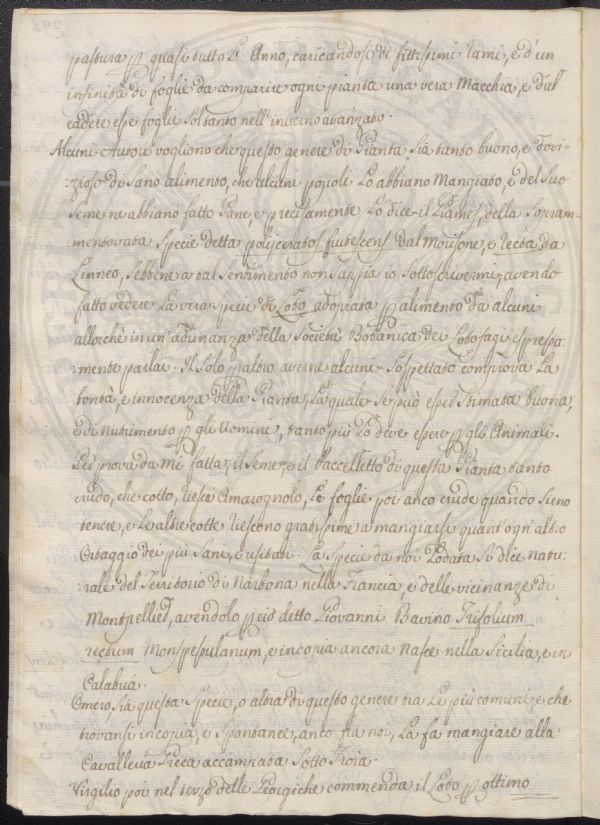 pastura p quasi tutto l'Anno, caricandosi di fittissimi rami, e d'un
infinità di foglie da comparire ogni pianta una vera Macchia, e dal
cadere esse foglie soltanto nell'inverno avanzato.
Alcuni Autori vogliono che questo genere di Pianta sia tanto buono, e dovi-
:zioso di sano alimento, che alcuni popoli lo abbiano Mangiato, e del suo
seme ne abbiano fatto Pane, e precisamente lo dice il della sopram-
:mentovata specie detta dal Morisone, e recta da
Linneo, sebbene a tal sentimento non sappia io sottoscrivermi, avendo
fatto vedere la vera specie di Loto adoprata p alimento da alcuni
allorchè in un'adunanza della Società Botanica dei Lotofagi espressa-
:mente parlai. Il solo p altro averne alcuni sospettato comprova la
bontà, e innocenza della Pianta, la quale se può esser stimata buona,
e di nutrimento p gli Uomini, tanto più lo deve essere p gli Animali.
Per prova da me fatta, il seme, e il baccelletto di questa Pianta tanto
crudo, che cotto, riesce Amarognolo, le foglie poi anco crude quando sieno
tenere, e le altre cotte riescono gratissime a mangiarsi quant'ogn'altro
Erbaggio dei più sani, e usitati. La specie da noi lodata si dice natu-
:rale del Territorio di Narbona nella Francia, e delle vicinanze di
Montpellier, avendolo p ciò detto Giovanni Bavino Trifolium
rectum Monspesulanum, e in copia ancora nasce nella Sicilia, e in
Calabria.
Omero, sia questa specie, o altra di questo genere tra le più comuni, e che
trovansi in copia, e spontanee, anco fra noi, la fa mangiare alla
Cavalleria Greca accampata sotto Troia.
Virgilio poi nel terzo delle Georgiche commenda il Loto p ottimo